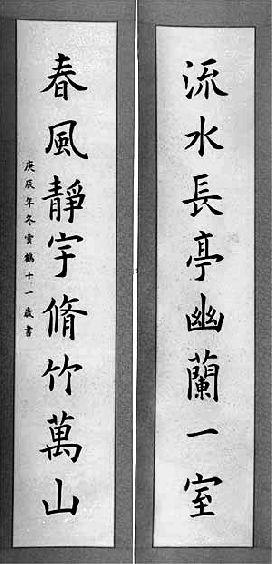 流水長亭幽蘭一室
春風靜宇脩竹萬山
庚辰年冬雲鶴十一歲書